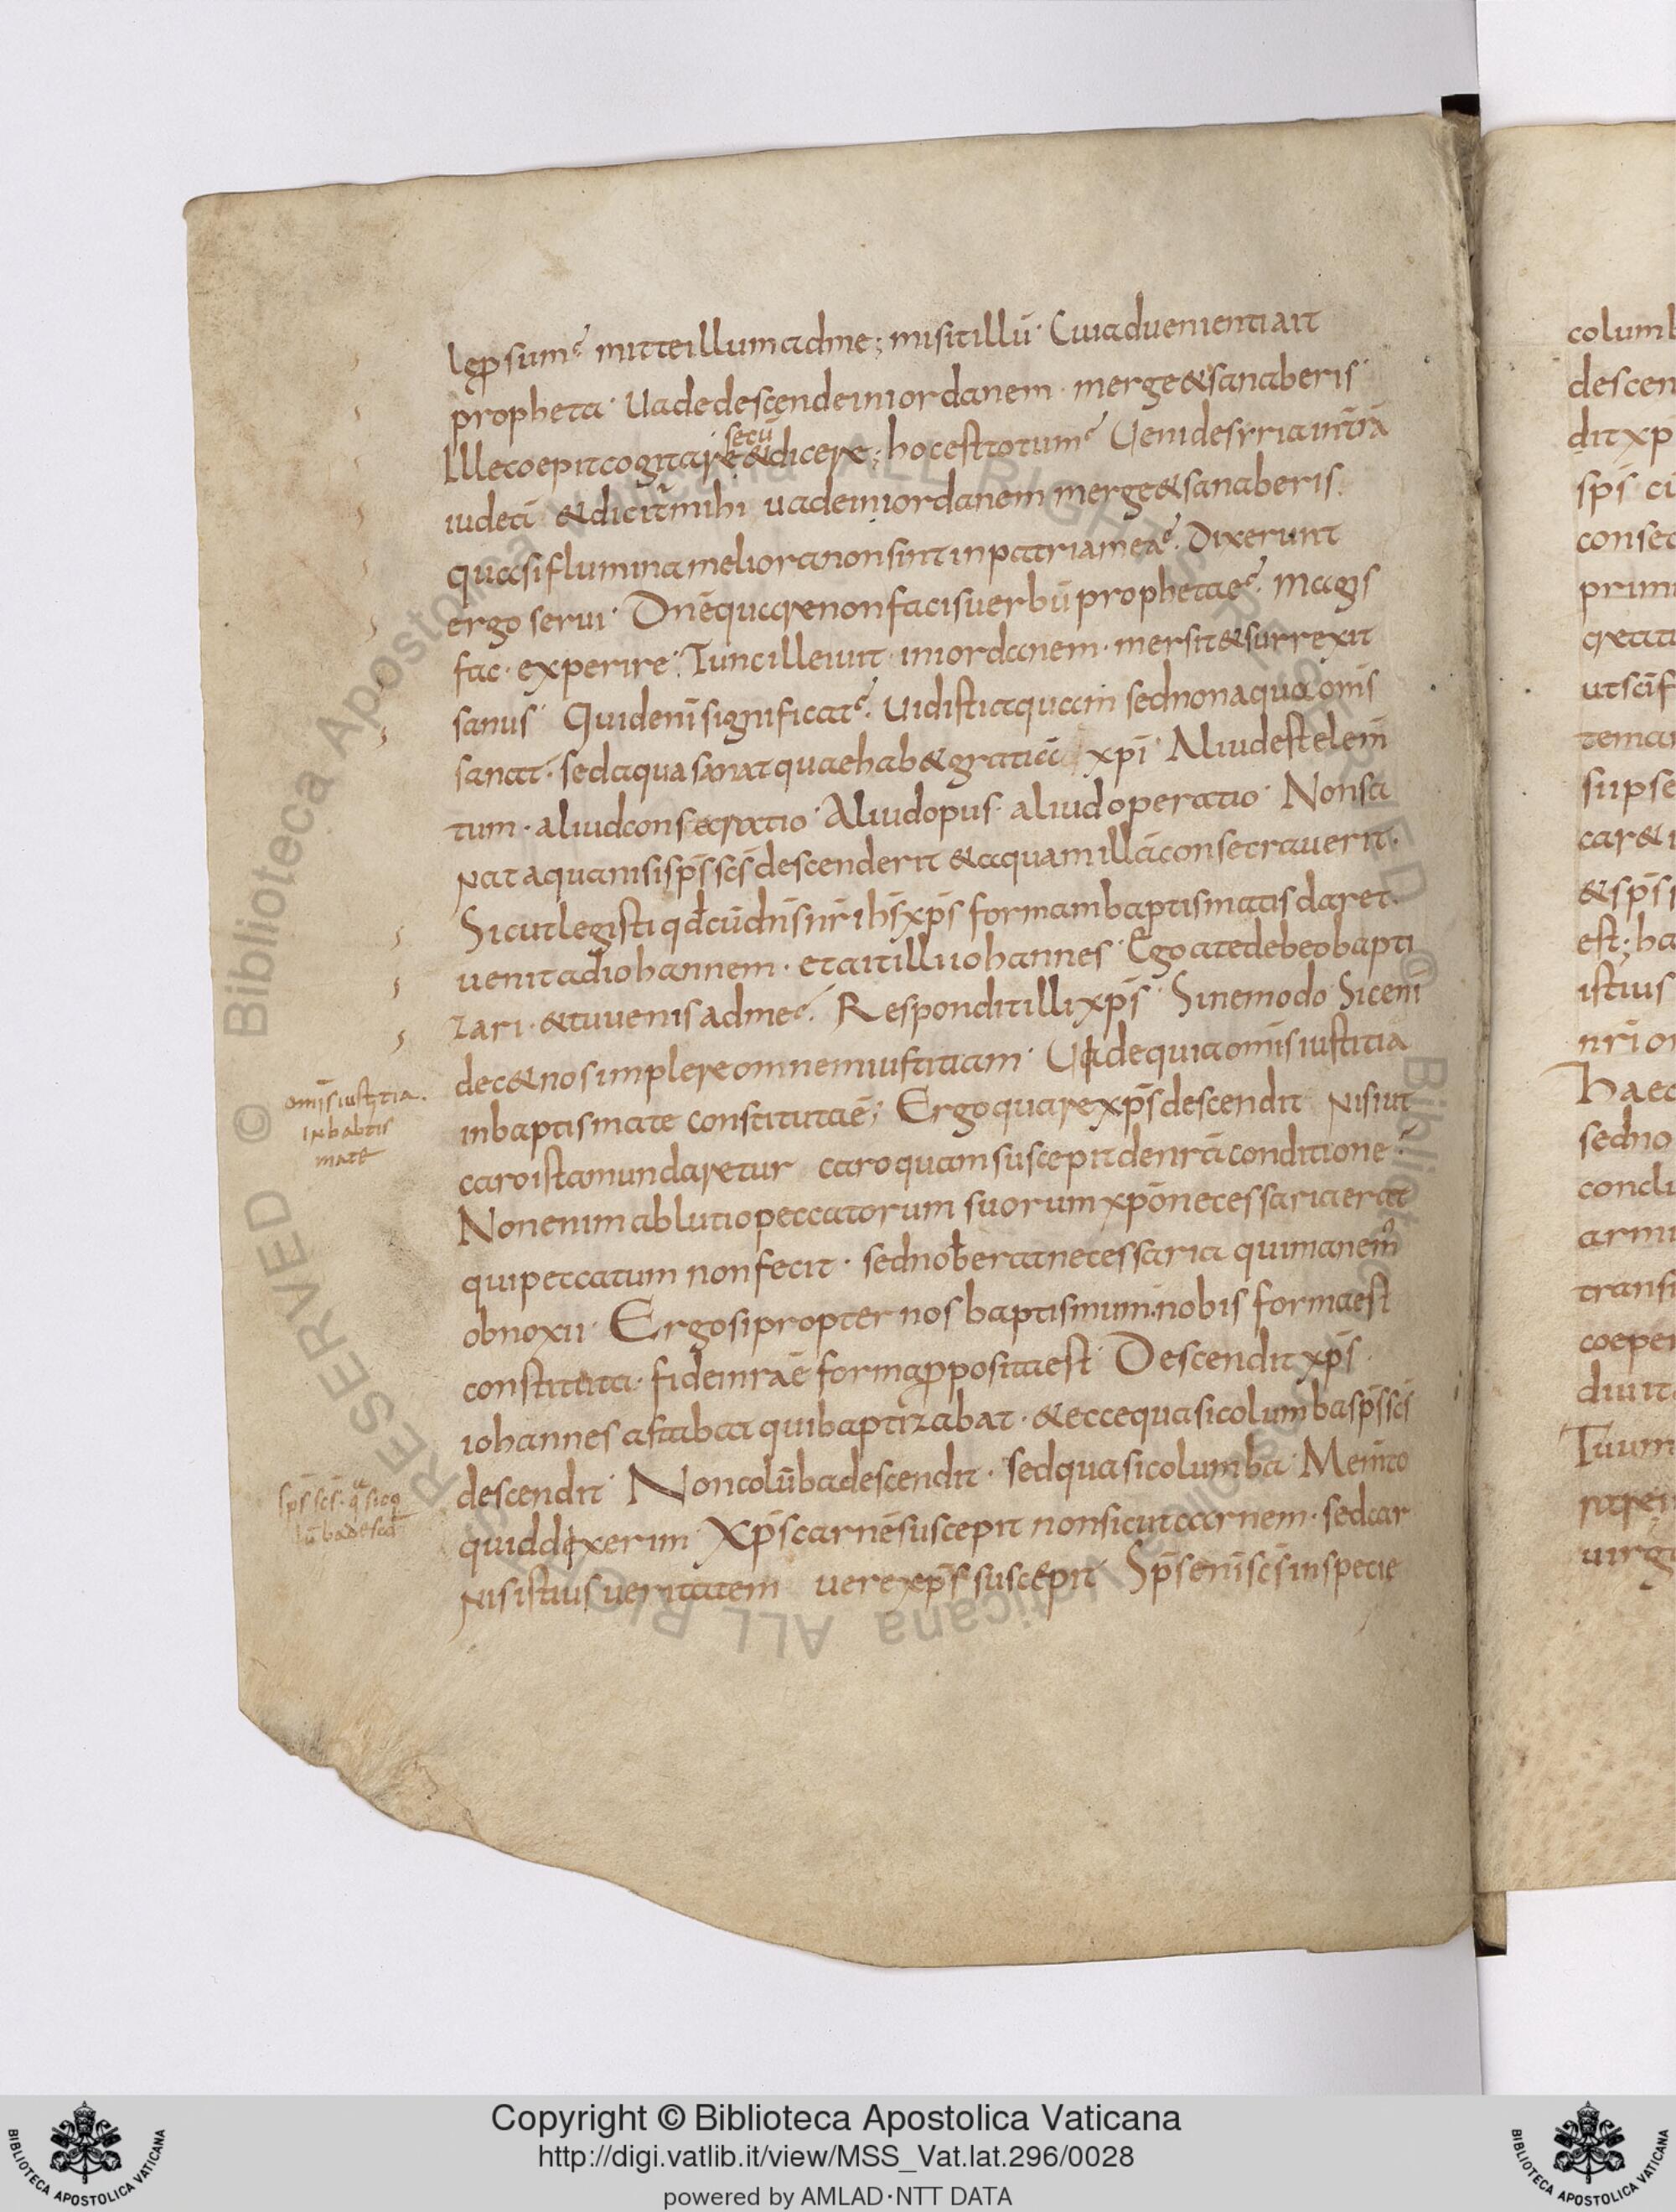 lep̱sum? mitteillumadme; misitillū· Cuiaduenientiait
propheta· Uadedescendeiniordanem· merge&sanaberis·
secū
Illecoepitcogitare&dicere; hocesttotum? Uenidesyriaintrā
iudeā &dicit̄mihi uadeiniordanem merge&sanaberis.
quasifluminameliora nonsintinpatriamea? Dixerunt
ergo serui· Dnēquarenonfacisuerbūprophetae? magis
fac· experire· Tuncilleiuit· iniordanem· mersit&surrexit
sanus· Quidenīsignificat? Uidistiaquam sednonaquaomīs
sanat· sedaquasanatquaehab&gratiā xp̄i· Aliudestelem̄
tum· aliudconsecratio· Aliudopus· aliudoperatio· Nonsa
nataquanisisp̄s sc̄s descenderit &aquamillāconsecrauerit·
Sicutlegisti qd̄cūdn̄s nr̄ ih̄s xp̄s formambaptismatisdaret·
uenitadiohannem· etaitilli iohannes· Egoatedebeobapti
zari· &tuuenisadme? Responditillixp̄s· Sinemodo· Sicenī
dec&nosimplereomnemiustitiam· Uidequiaomīsiustitia
inbaptismate constitutaē; Ergoquarexp̄sdescendit nisiut
caroistamundaretur caroquamsuscepitdenr̄aconditione?
Nonenimablutiopeccatorum suorumxp̄onecessariaerat
quipeccatum nonfecit· sednob̄eratnecessaria quimanem̄
obnoxii· Ergosipropter nos baptismum·nobis formaest
constituta· fideinr̄aē formap̱positaest· Descendit xp̄s·
iohannes astabat quibaptizabat· &eccequasicolumbasp̄s sc̄s
descendit· Noncolūbadescendit· sedquasicolumba· Memto
quiddixerim· Xp̄scarnēsuscepit nonsicutcarnem· sedcar
nisistiusueritatem uerexp̄s suscepit· Sp̄senīsc̄sinspecie
omīsiustitia·
inbabtis
mate
sp̄s sc̄s· q̄sico
lūbadescd̄
columb
descen
ditxp
sp̄s ci
consec
prim
creata
utscīf
temar
sūpse
car&i
&sp̄s s
est; ha
istius
nr̄i or
haec
sedno
conclu
armi
transi
coeper
diuit
Tuum
uirg
© Biblioteca Apostolica Vaticana ALL RIGHTS RESERVED
© Biblioteca Apostolica Vaticana ALL RIGHTS RESERVED
Copyright © Biblioteca Apostolica Vaticana
http://digi.vatlib.it/view/MSS_Vat.lat.296/0028
powered by AMLAD·NTT DATA
BIBLIOTECA APOSTOLICA VATICANA
BIBLIOTECA APOSTOLICA VATICANA